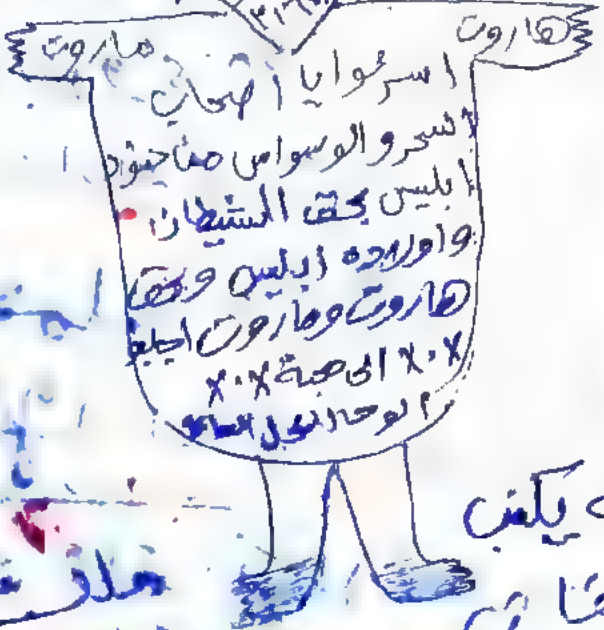 ٣١٦
هاروت ماروت
اسرعوا يا اصحاب
السحر و الوسواس من جنود
ابليس بحق الشيطان
واولاده ابليس وبحق
هاروت وماروت اجلبو
X٠X الى محبة X٠X
الوحا العجل الساعة
يكتب